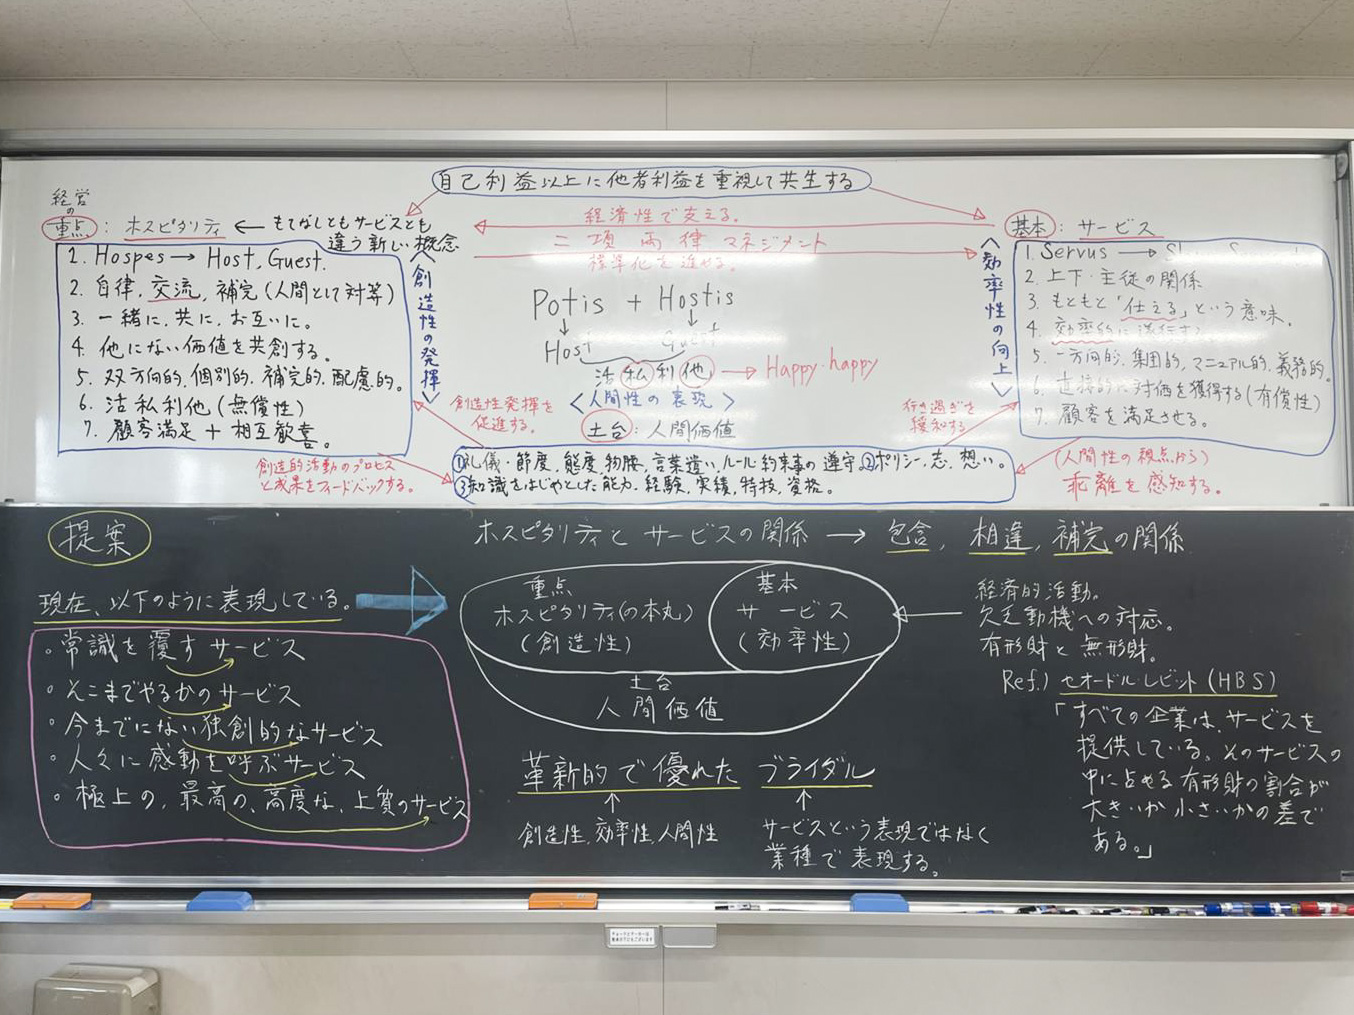 自己利益以上に他者利益を重視して共生する
経営
の
重点：ホスピタリティ ← もてなしともサービスとも
違う新しい概念
1. Hospes → Host, Guest.
2. 自律, 交流, 補完(人間として対等)
3. 一緒に, 共に, お互いに。
4. 他にない価値を共創する。
5. 双方向的, 個別的, 補完的, 配慮的。
6. 活私利他(無償性)
7. 顧客満足 + 相互歓喜。
<創造性の発揮>
経済性で支える。
二項両律マネジメント
標準化を進める。
Potis + Hostis
Host Guest
活私利他 → Happy・happy
<人間性の表現>
土台：人間価値
創造性発揮を
促進する。
行き過ぎを
緩和する
<効率性の向上>
基本：サービス
1. Servus →
2. 上下・主従の関係
3. もともと「仕える」という意味。
4. 効率的に遂行する
5. 一方向的, 集団的, マニュアル的, 義務的。
6. 直接的に対価を獲得する(有償性)
7. 顧客を満足させる。
創造的活動のプロセス
と成果をフィードバックする。
①礼儀・節度, 態度, 物腰, 言葉遣い, ルール・約束事の遵守, ②ポリシー, 志, 想い。
③知識をはじめとした能力, 経験, 実績, 特技, 資格。
(人間性の視点から)
乖離を感知する。
提案
ホスピタリティとサービスの関係 → 包含, 相違, 補完の関係
現在、以下のように表現している。
・常識を覆すサービス
・そこまでやるかのサービス
・今までにない独創的なサービス
・人々に感動を呼ぶサービス
・極上の、最高の、高度な、上質のサービス
重点
ホスピタリティ(の本丸)
(創造性)
基本
サービス
(効率性)
土台
人間価値
経済的活動。
欠乏動機への対応。
有形財と無形財。
Ref.) セオドール・レビット(HBS)
「すべての企業は、サービスを
提供している。そのサービスの
中に占める有形財の割合が
大きいか小さいかの差で
ある。」
革新的で優れた ブライダル
↑
創造性, 効率性, 人間性
↑
サービスという表現ではなく
業種で表現する。